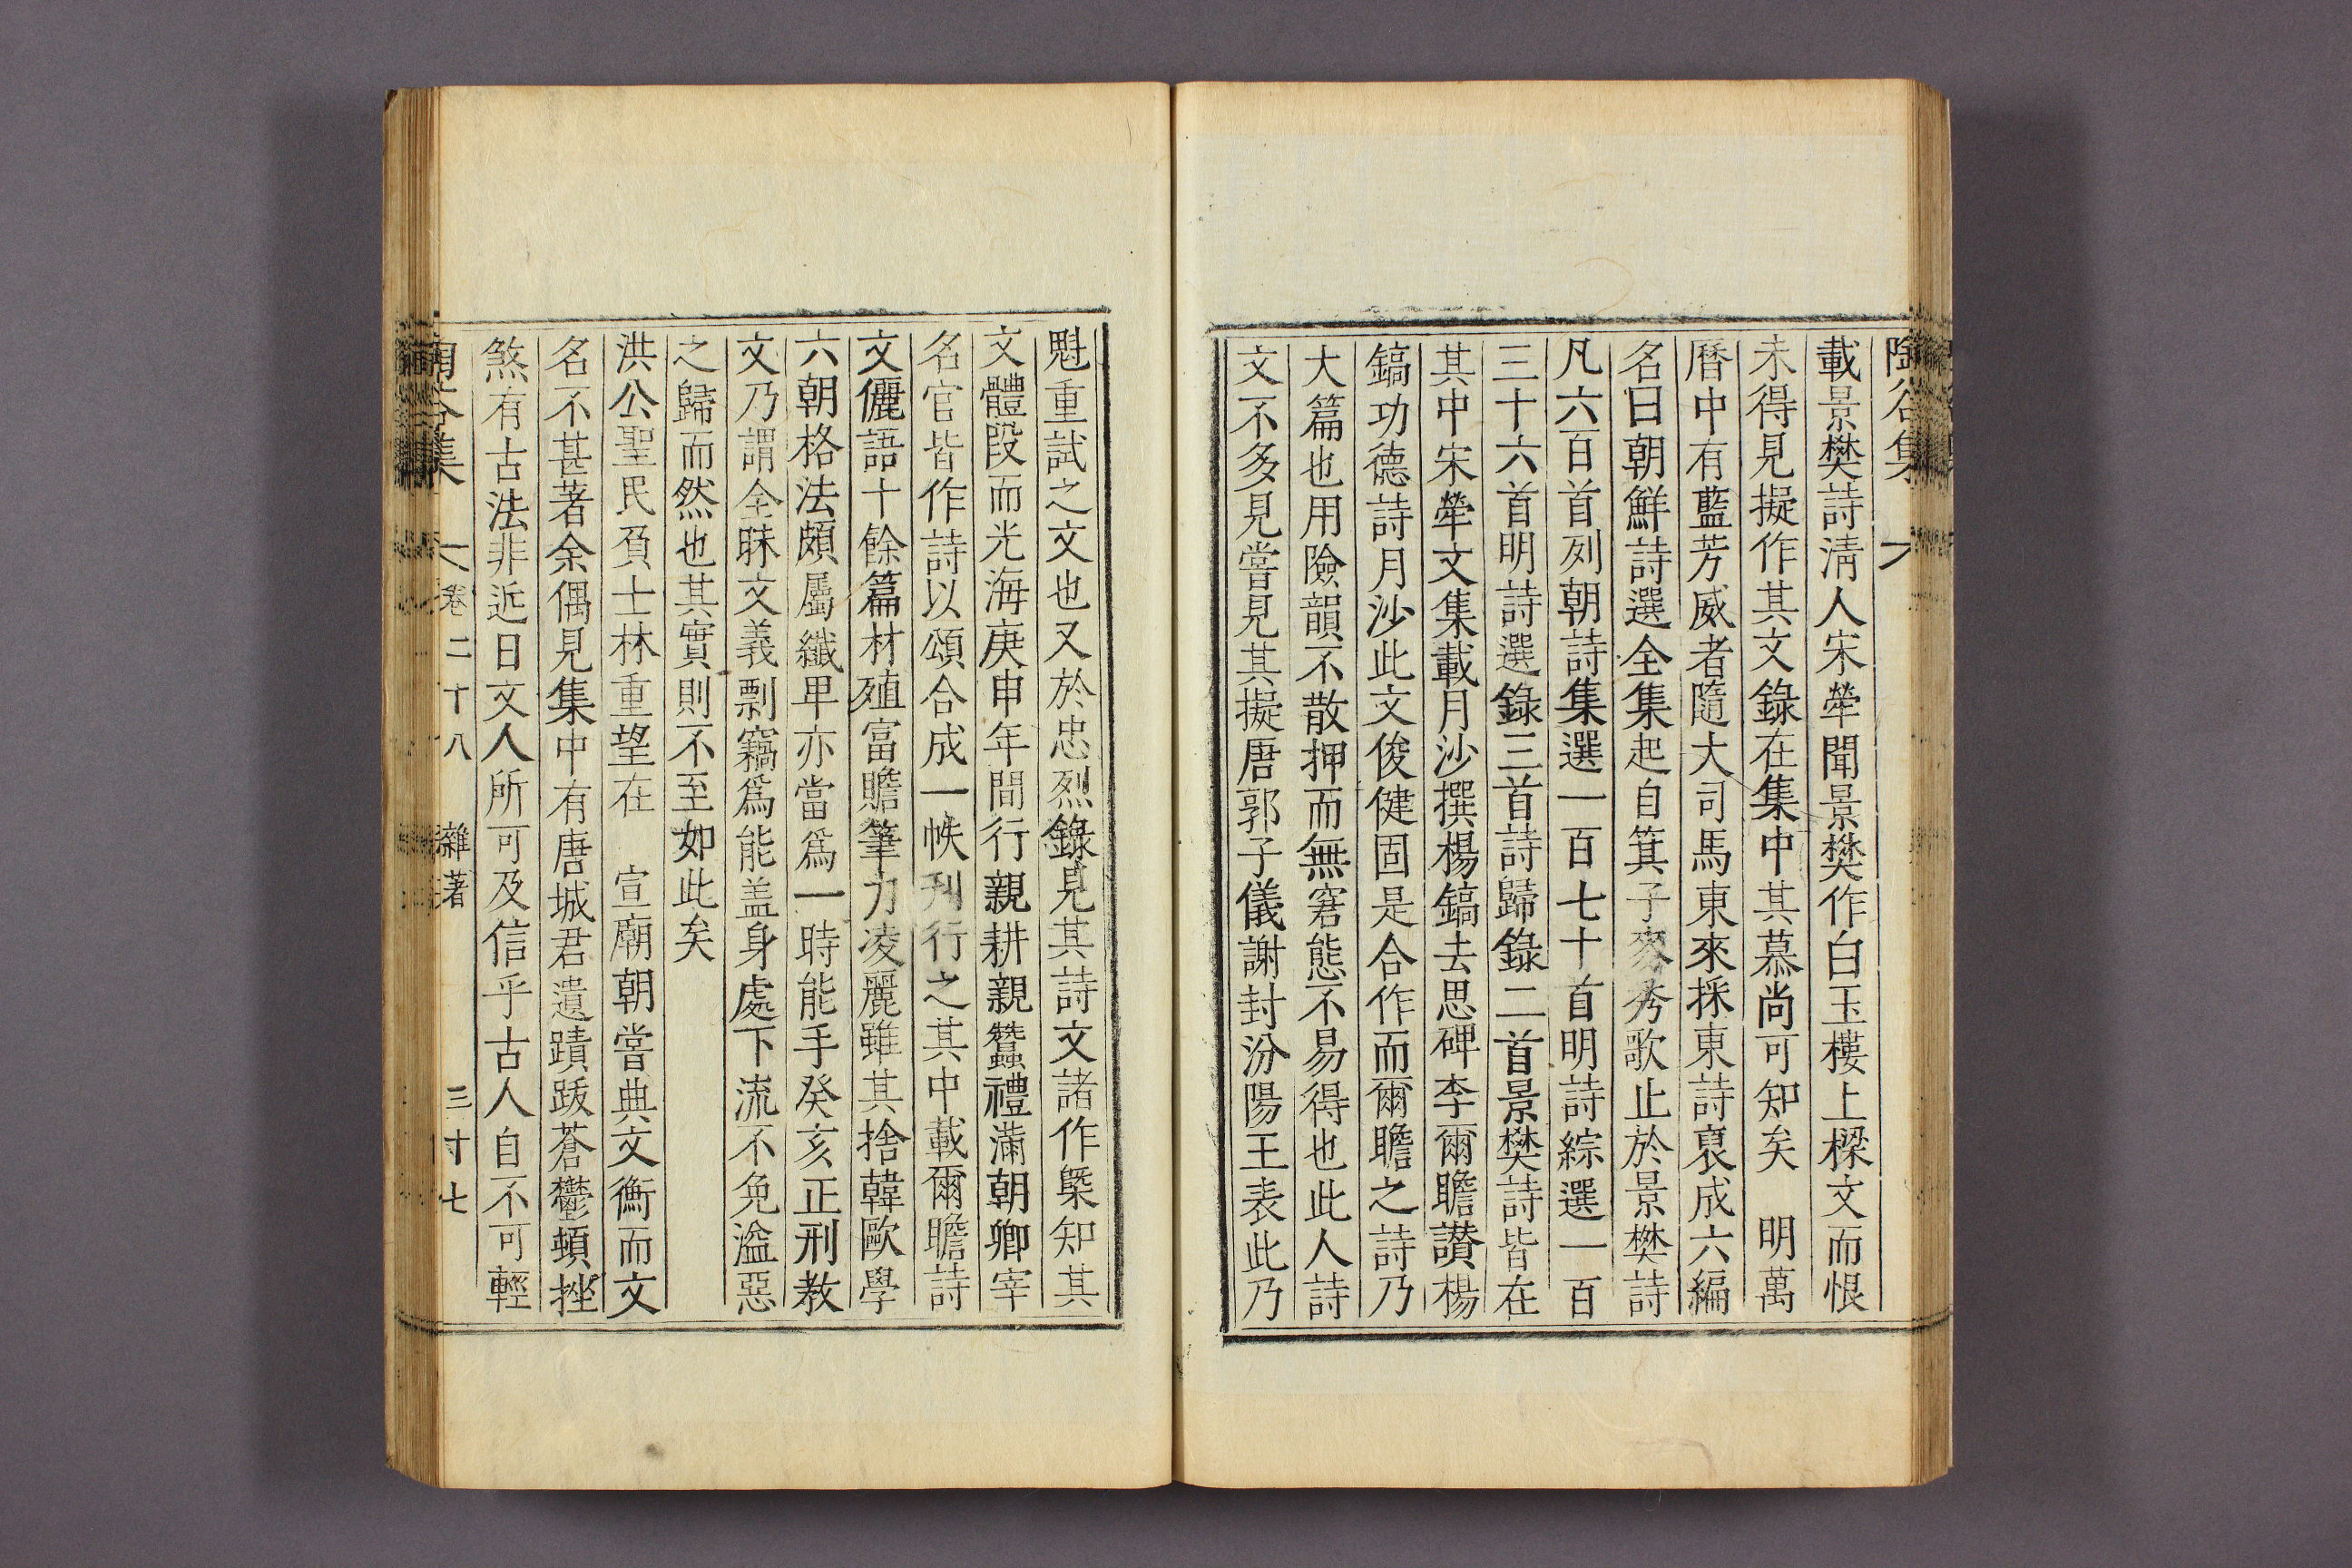 陶谷集
載景樊詩淸人宋犖聞景樊作白玉樓上樑文而恨
未得見擬作其文錄在集中其慕尙可知矣 明萬
曆中有藍芳威者隨大司馬東來採東詩裒成六編
名曰朝鮮詩選全集起自箕子麥秀歌止於景樊詩
凡六百首列朝詩集選一百七十首明詩綜選一百
三十六首明詩選錄三首詩歸錄二首景樊詩皆在
其中宋犖文集載月沙撰楊鎬去思碑李爾瞻讚楊
鎬功德詩月沙此文俊健固是合作而爾瞻之詩乃
大篇也用險韻不散押而無窘態不易得也此人詩
文不多見嘗見其擬唐郭子儀謝封汾陽王表此乃
魁重試之文也又於忠烈錄見其詩文諸作槩知其
文體段而光海庚申年間行親耕親蠶禮滿朝卿宰
名官皆作詩以頌合成一帙刊行之其中載爾瞻詩
文儷語十餘篇材殖富贍筆力凌麗雖其捨韓歐學
六朝格法頗屬纖卑亦當爲一時能手癸亥正刑敎
文乃謂全昧文義剽竊爲能盖身處下流不免溢惡
之歸而然也其實則不至如此矣
洪公聖民負士林重望在 宣廟朝嘗典文衡而文
名不甚著余偶見集中有唐城君遺蹟跋蒼鬱頓挫
煞有古法非近日文人所可及信乎古人自不可輕
陶谷集 卷二十八 雜著 三十七